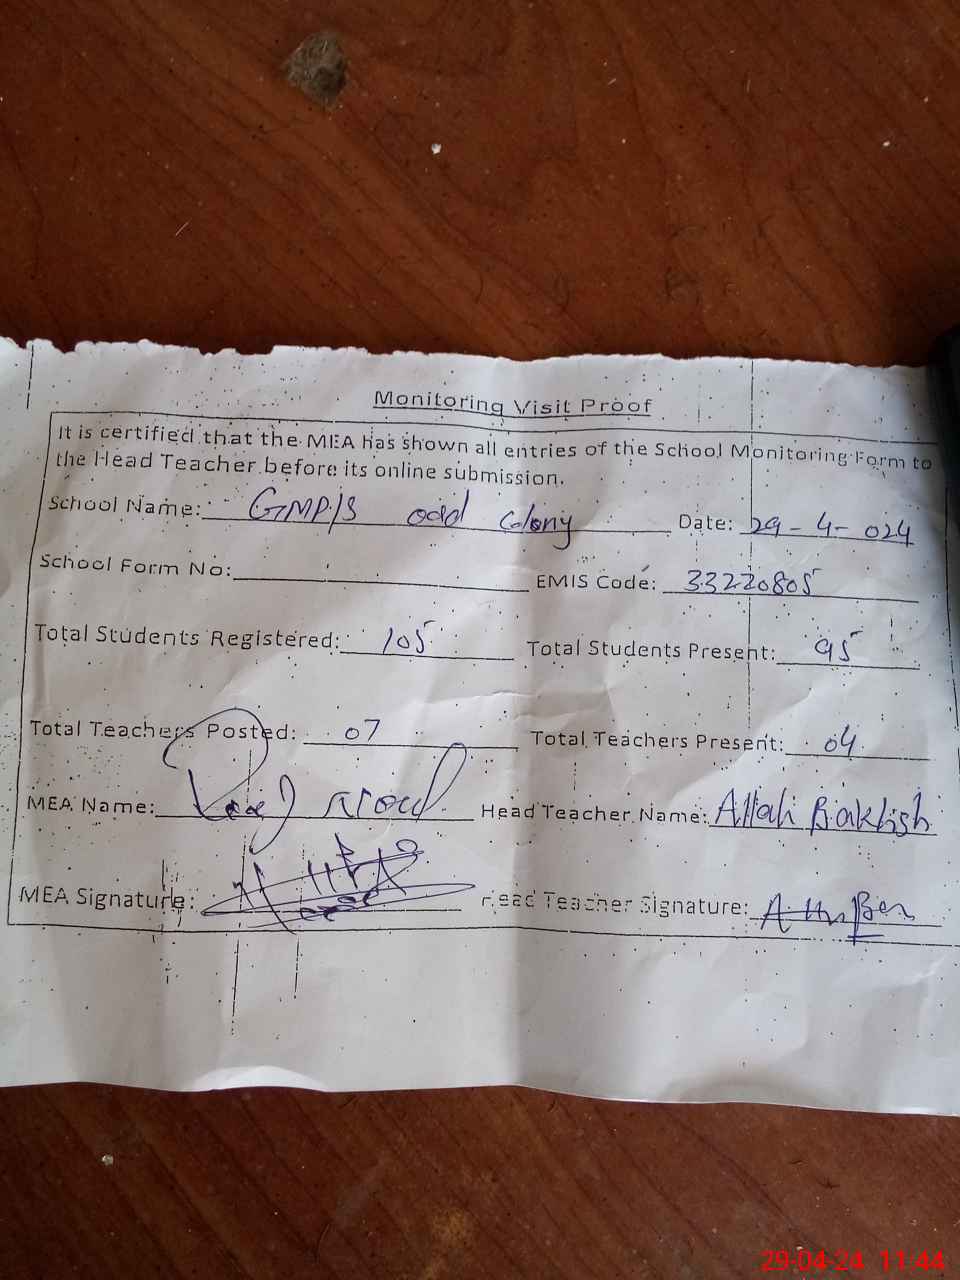 Monitoring Visit Proof
It is certified that the MEA has shown all entries of the School Monitoring Form to
the Head Teacher before its online submission.
School Name: GMP/S odd Colony Date: 29-4-024
School Form No: EMIS Code: 33220805
Total Students Registered: 105 Total Students Present: 95
Total Teachers Posted: 07 Total Teachers Present: 04
MEA Name: Head Teacher Name: Allah Bakhsh
MEA Signature: Head Teacher Signature:
29-04-24 11:44